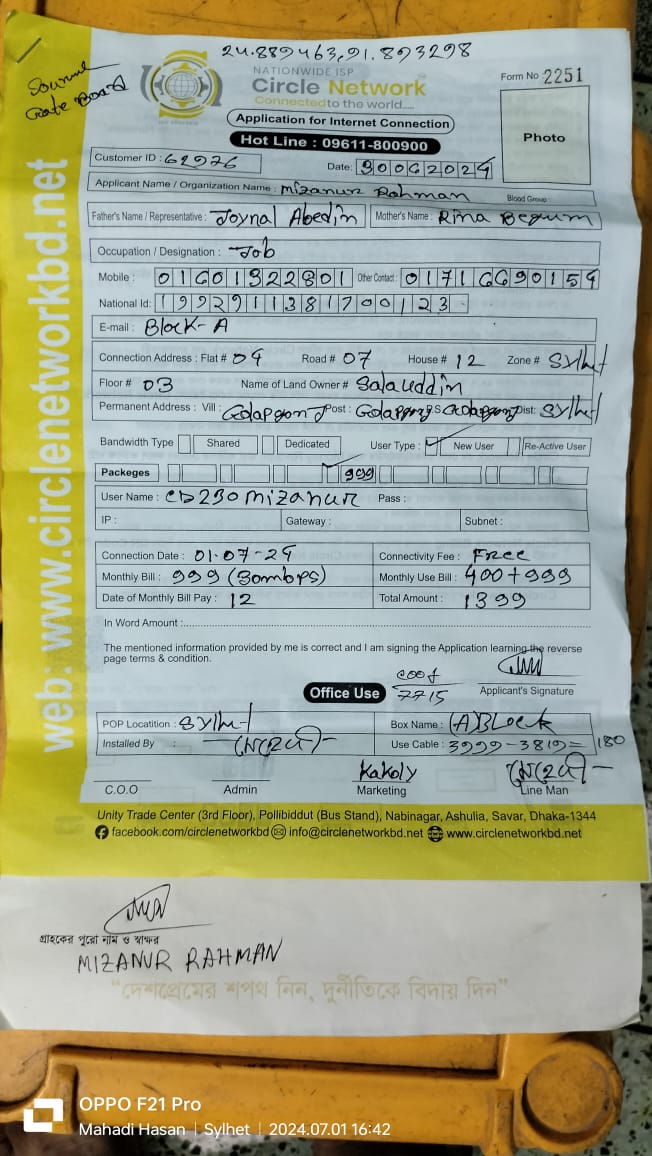 24.889463,91.893298
NATIONWIDE ISP
Circle Network
Connected to the world.....
Form No 2251
Application for Internet Connection
Hot Line : 09611-800900
Photo
Customer ID : 62976
Date: 30062024
Applicant Name / Organization Name : Mizanur Rahman Blood Group :
Father's Name / Representative : Joynal Abedin Mother's Name : Rina Begum
Occupation / Designation : Job
Mobile : 01601322801 Other Contact : 01716690154
National Id: 1992911381700123
E-mail : Block-A
Connection Address : Flat # 04 Road # 07 House # 12 Zone # Sylhet
Floor # 03 Name of Land Owner # Salauddin
Permanent Address : Vill : Golapgonj Post : Dist: Sylhet
Bandwidth Type Shared Dedicated User Type : New User Re-Active User
Packeges 999
User Name : Pass :
IP : Gateway : Subnet :
Connection Date : 01-07-24 Connectivity Fee : Free
Monthly Bill : 999 (30mbps) Monthly Use Bill : 400+999
Date of Monthly Bill Pay : 12 Total Amount : 1399
In Word Amount :
The mentioned information provided by me is correct and I am signing the Application learning the reverse
page terms & condition.
Office Use
7715
Applicant's Signature
POP Locatition : Sylhet Box Name : (A)Block
Installed By : Use Cable : 3999-3819= 180
Kakoly
C.O.O Admin Marketing Line Man
Unity Trade Center (3rd Floor), Pollibiddut (Bus Stand), Nabinagar, Ashulia, Savar, Dhaka-1344
facebook.com/circlenetworkbd info@circlenetworkbd.net www.circlenetworkbd.net
web: www.circlenetworkbd.net
গ্রাহকের পুরো নাম ও স্বাক্ষর
MIZANUR RAHMAN
"দেশপ্রেমের শপথ নিন, দুর্নীতিকে বিদায় দিন"
OPPO F21 Pro
Mahadi Hasan | Sylhet | 2024.07.01 16:42